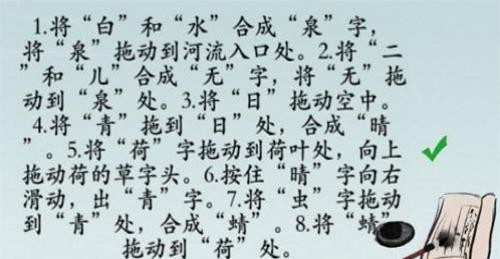 1.将“白”和“水”合成“泉”字，
将“泉”拖动到河流入口处。2.将“二
”和“儿”合成“无”字，将“无”拖
动到“泉”处。3.将“日”拖动空中。
4.将“青”拖到“日”处，合成“晴
”。5.将“荷”字拖动到荷叶处，向上
拖动荷的草字头。6.按住“晴”字向右
滑动，出“青”字。7.将“虫”字拖动
到“青”处，合成“蜻”。8.将“蜻”
拖动到“荷”处。